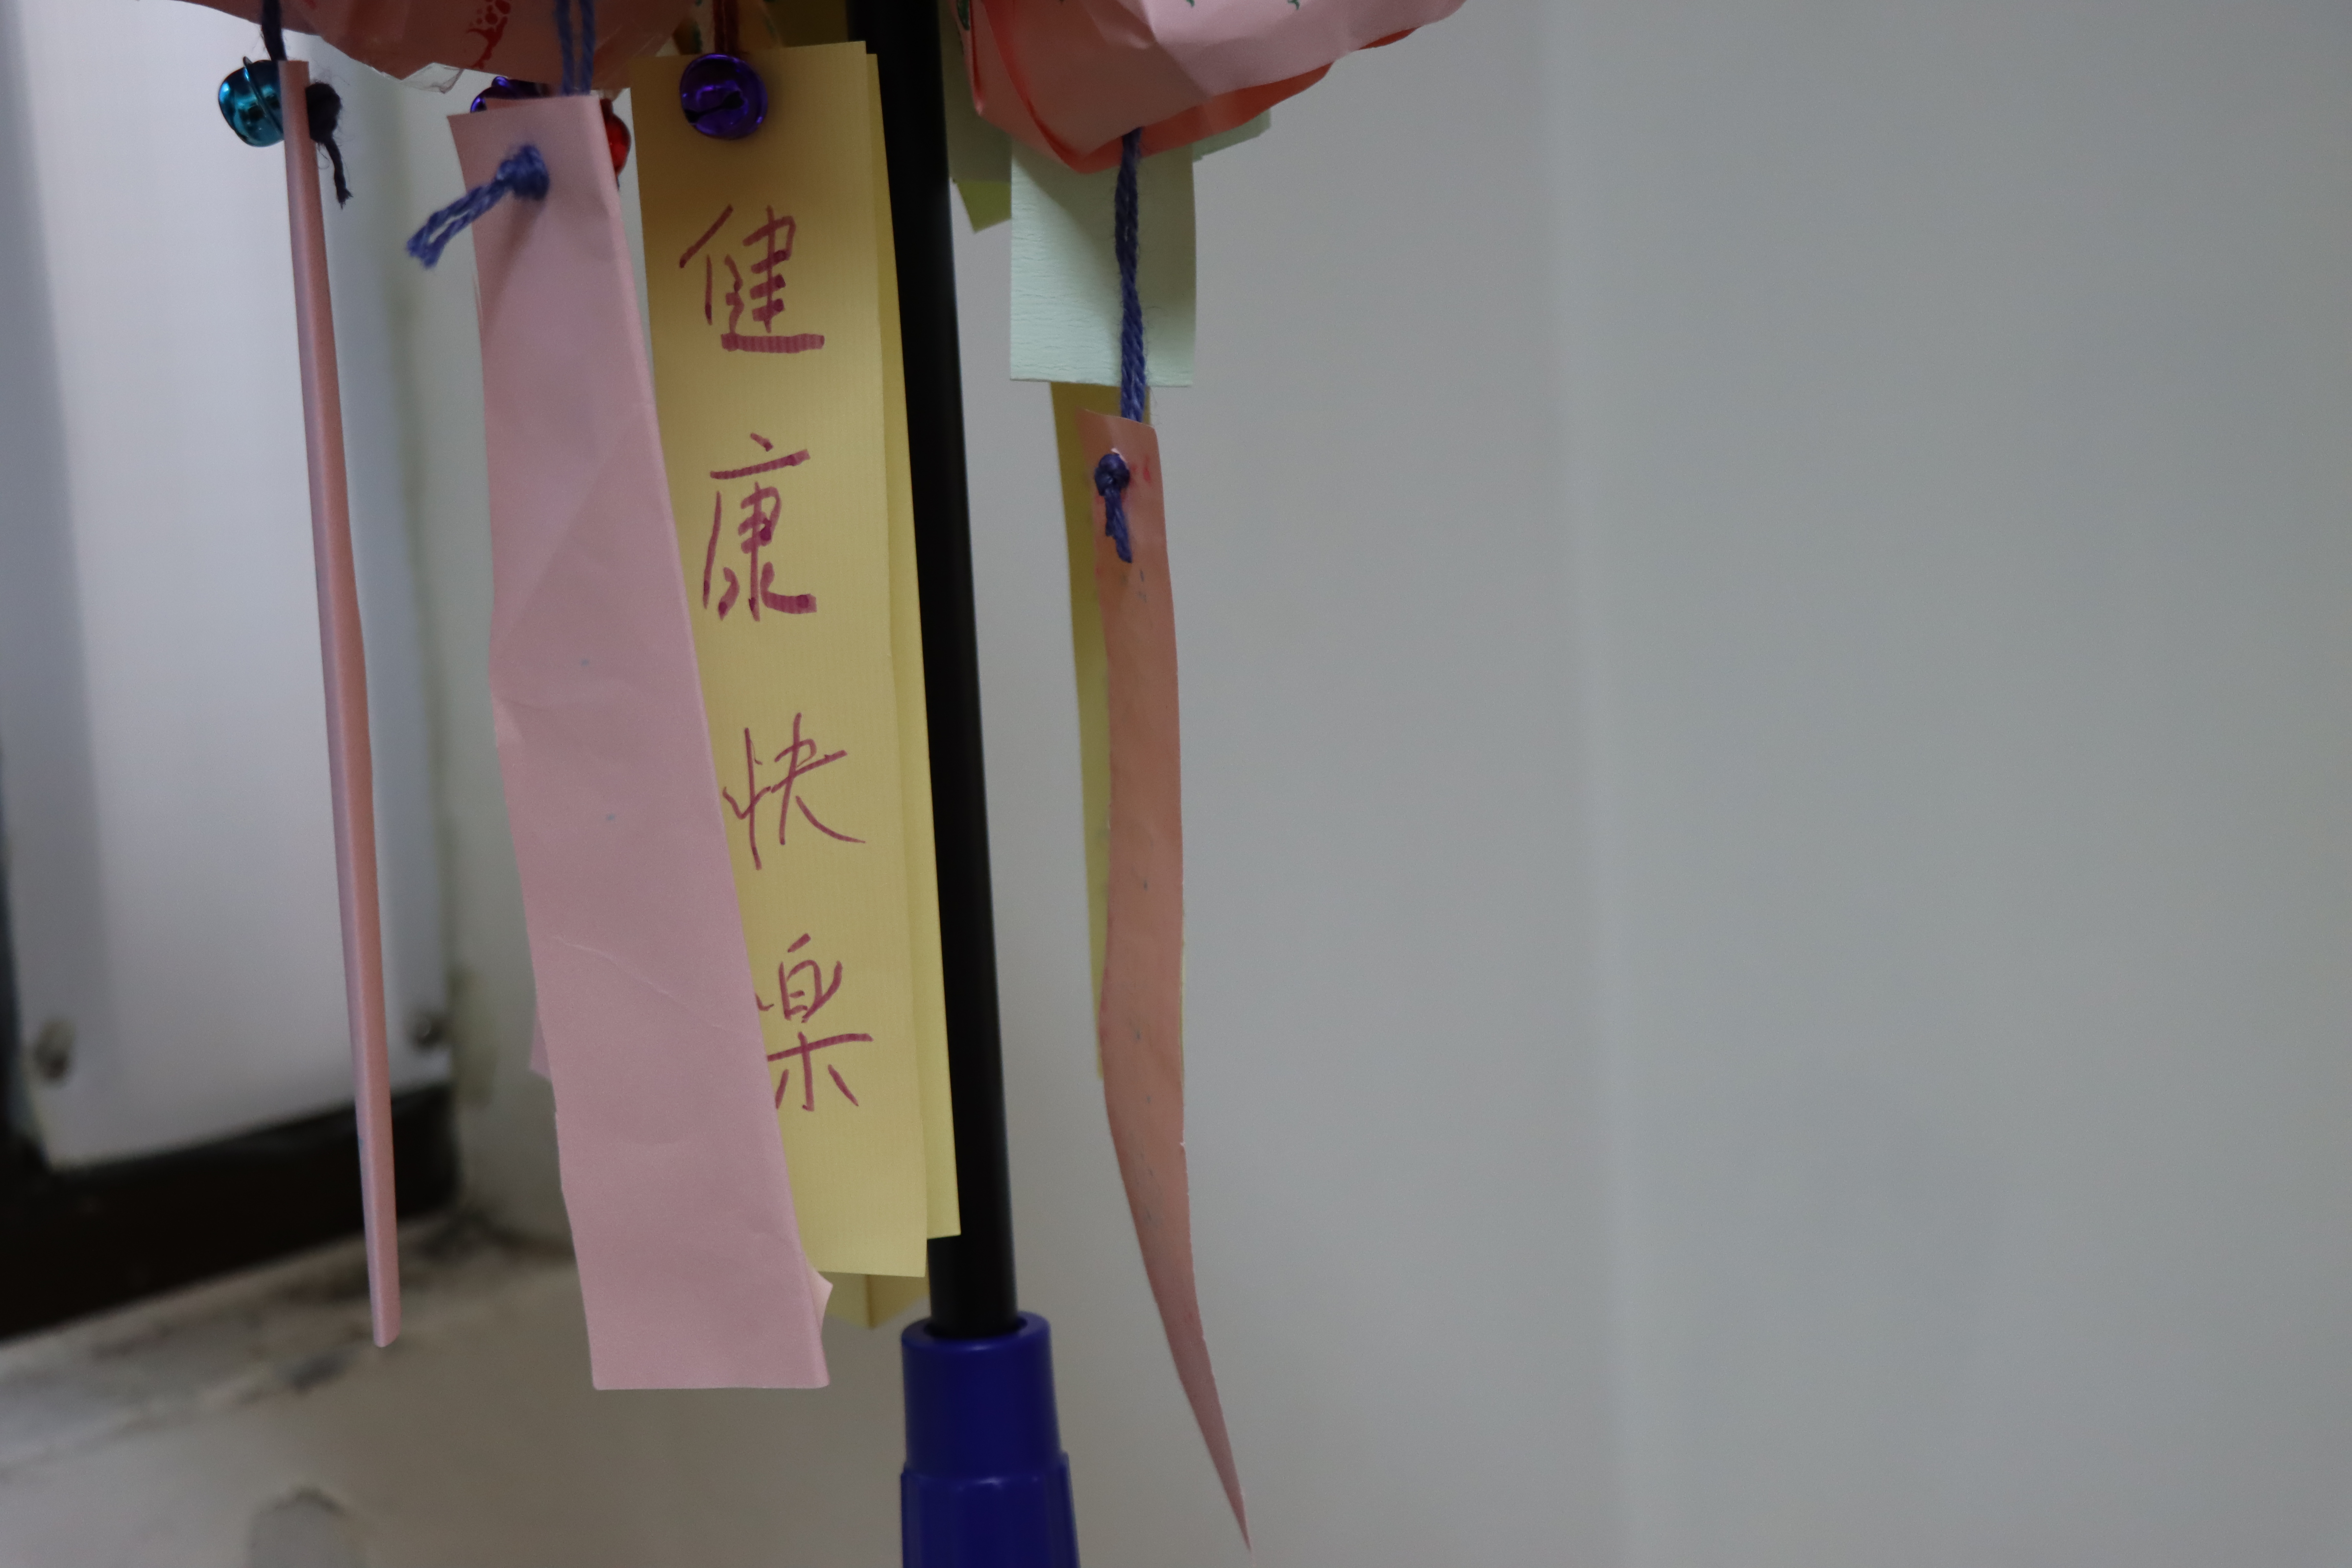 健康快樂